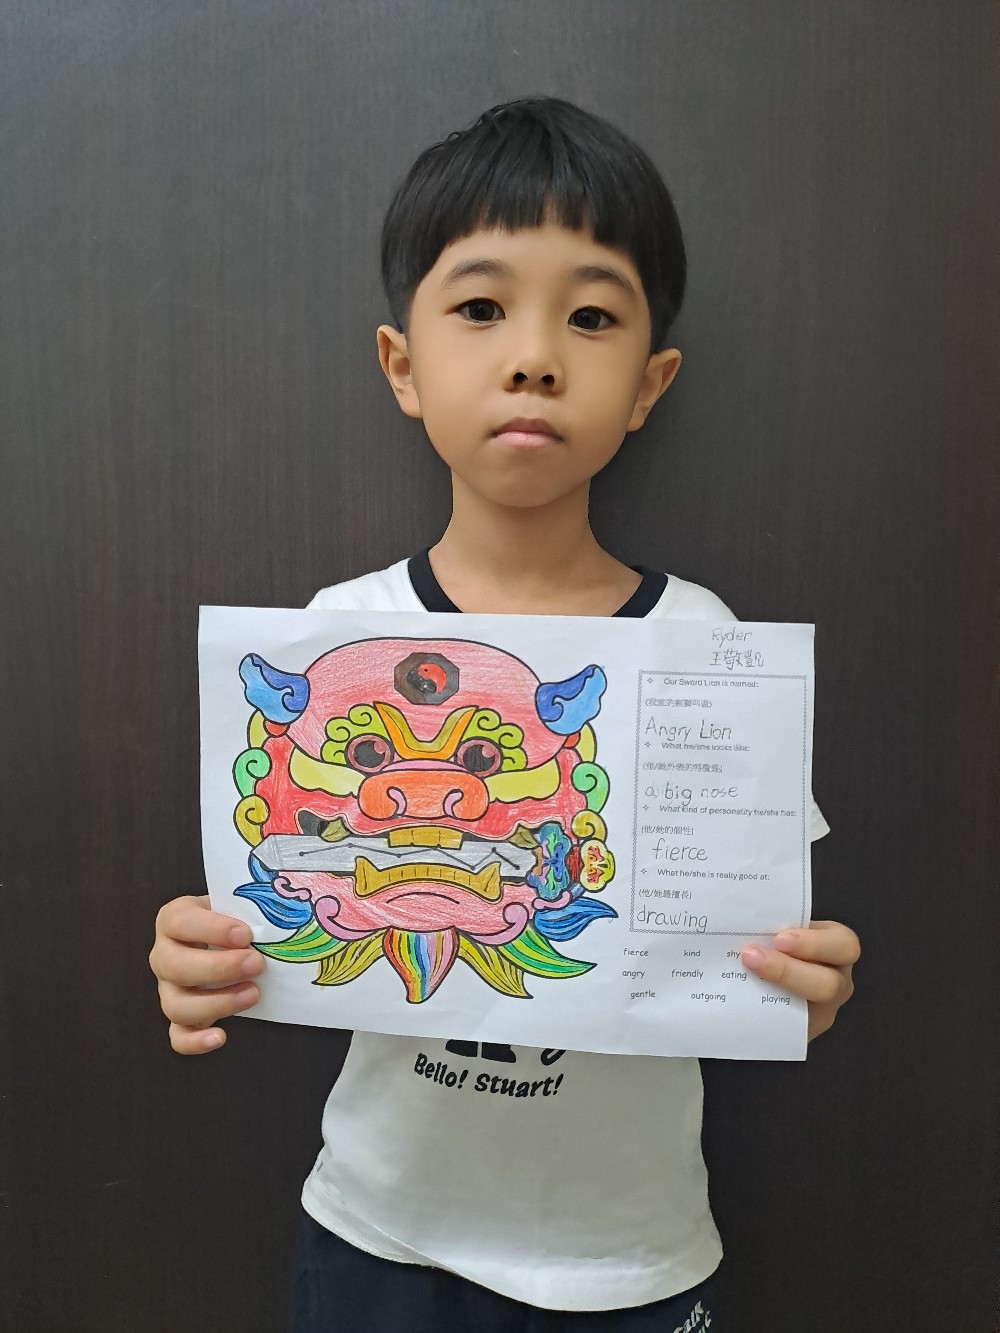 Ryder
王敬凱
✧ Our Sword Lion is named:
(我家的劍獅叫做)
Angry Lion
✧ What he/she looks like:
(他/她外表的特徵是)
a big nose
✧ What kind of personality he/she has:
(他/她的個性)
fierce
✧ What he/she is really good at:
(他/她最擅長)
drawing
fierce kind shy
angry friendly eating
gentle outgoing playing
Bello! Stuart!